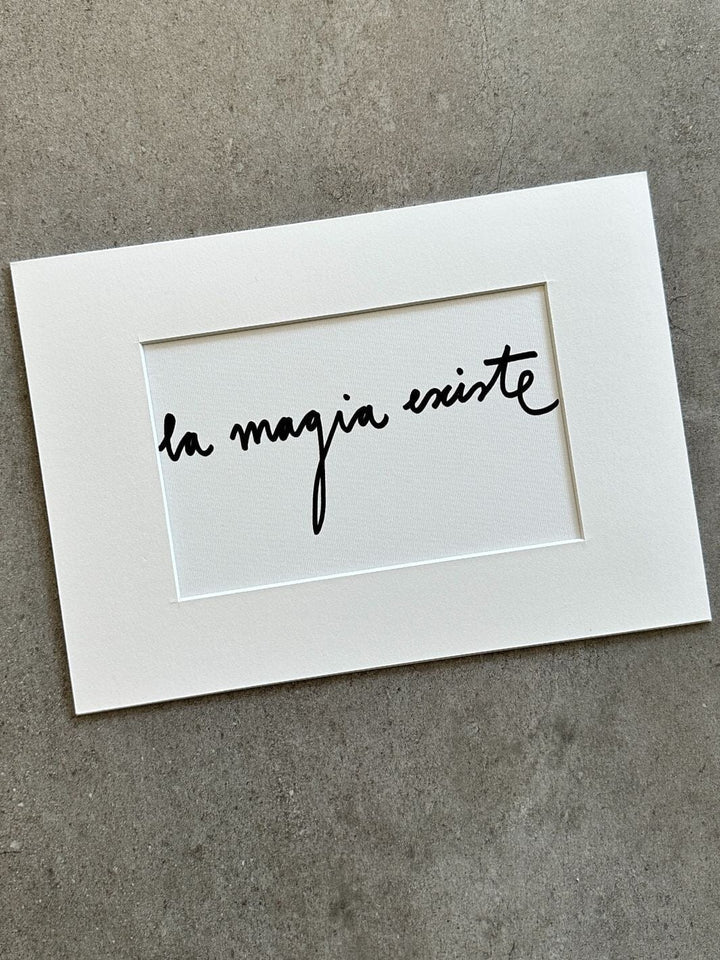 la magia existe